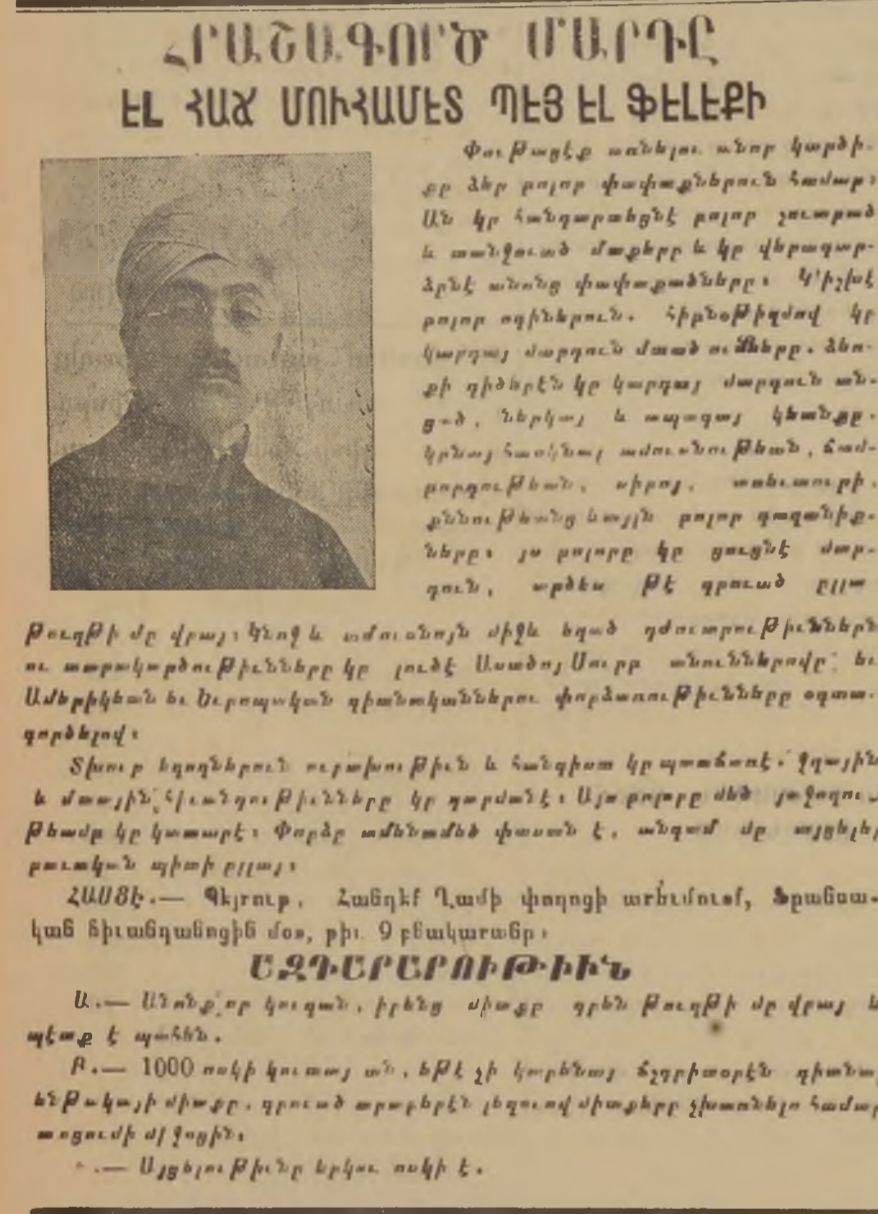 ՀՐԱՇԱԳՈՐԾ ՄԱՐԴԸ
ԷԼ ՀԱՃ ՄՈՒՀԱՄԷՏ ՊԷՅ ԷԼ ՖԵԼԵՔԻ
Փութացէք առնելու անոր կարծի-
քը ձեր բոլոր փափաքներուն համար։
Ան կը հանդարտեցնէ բոլոր շուարած
և տանջուած մտքերը և կը վերադար-
ձընէ անոնց փափաքածները։ Կ՚իշխէ
բոլոր ոգիներուն. հիբնօթիզմով կը
կարդայ մարդուն մտածումները. ձեռ-
քի գիծերէն կը կարդայ մարդուն ան-
ցած, ներկայ և ապագայ կեանքը.
կրնայ հասկնալ ամուսնութեան, ճամ-
բորդութեան, սիրոյ, առեւտուրի,
քննութեանց ևայլն բոլոր գաղտնիք-
ները։ յս բոլորը կը ցուցնէ մար-
դուն, արծես թէ գրուած ըլլա
թուղթի մը վրայ։ Կնոջ և ամուսնոյն միջև եղած դժուարութիւններն
ու տարակարծութիւնները կը լուծէ Աստծոյ Սուրբ անուններովը եւ
Ամերիկեան եւ Եւրոպական գիտնականներու փորձառութիւնները օգտա-
գործելով։
Տխուր եղողներուն ուրախութիւն և հանգիստ կը պատճառէ. ջղային
և մտային հիւանդութիւնները կը դարմանէ։ Այս բոլորը մեծ յաջողու-
թեամբ կը կատարէ։ Փորձը ամենամեծ փաստն է, անգամ մը այցելել
բաւական պիտի ըլլայ։
ՀԱՍՑԷ.— Պէյրութ, Հանդէք Ղամի փողոցի արեւմուտք, Ֆրանսա-
կան հիւանդանոցին մօտ, թիւ 9 բնակարանը։
ԱԶԴԱՐԱՐՈՒԹԻՒՆ
Ա.— Անոնք որ կուգան, իրենց միտքը գրեն թուղթի մը վրայ և
պէտք է պահեն.
Բ.— 1000 ոսկի կուտայ ան, եթէ չի կարենայ ճշգրիտօրէն գիտնալ
ենթակայի միտքը, գրուած արաբերէն լեզուով միտքերը չխառնելո համար
առցումի մ՚ջոցին։
.— Այցելութիւնը երկու ոսկի է.